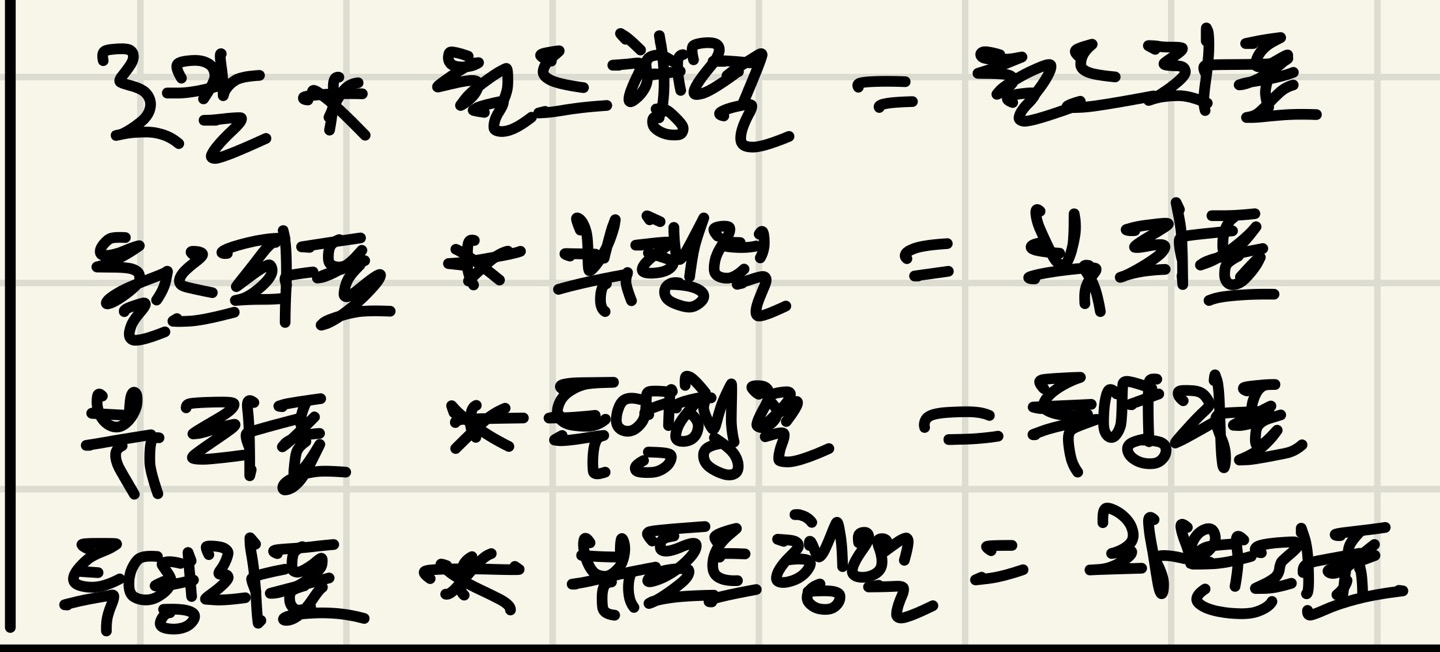 로컬 * 월드행렬 = 월드좌표
월드좌표 * 뷰행렬 = 뷰좌표
뷰좌표 * 투영행렬 = 투영좌표
투영좌표 * 뷰포트행렬 = 화면좌표